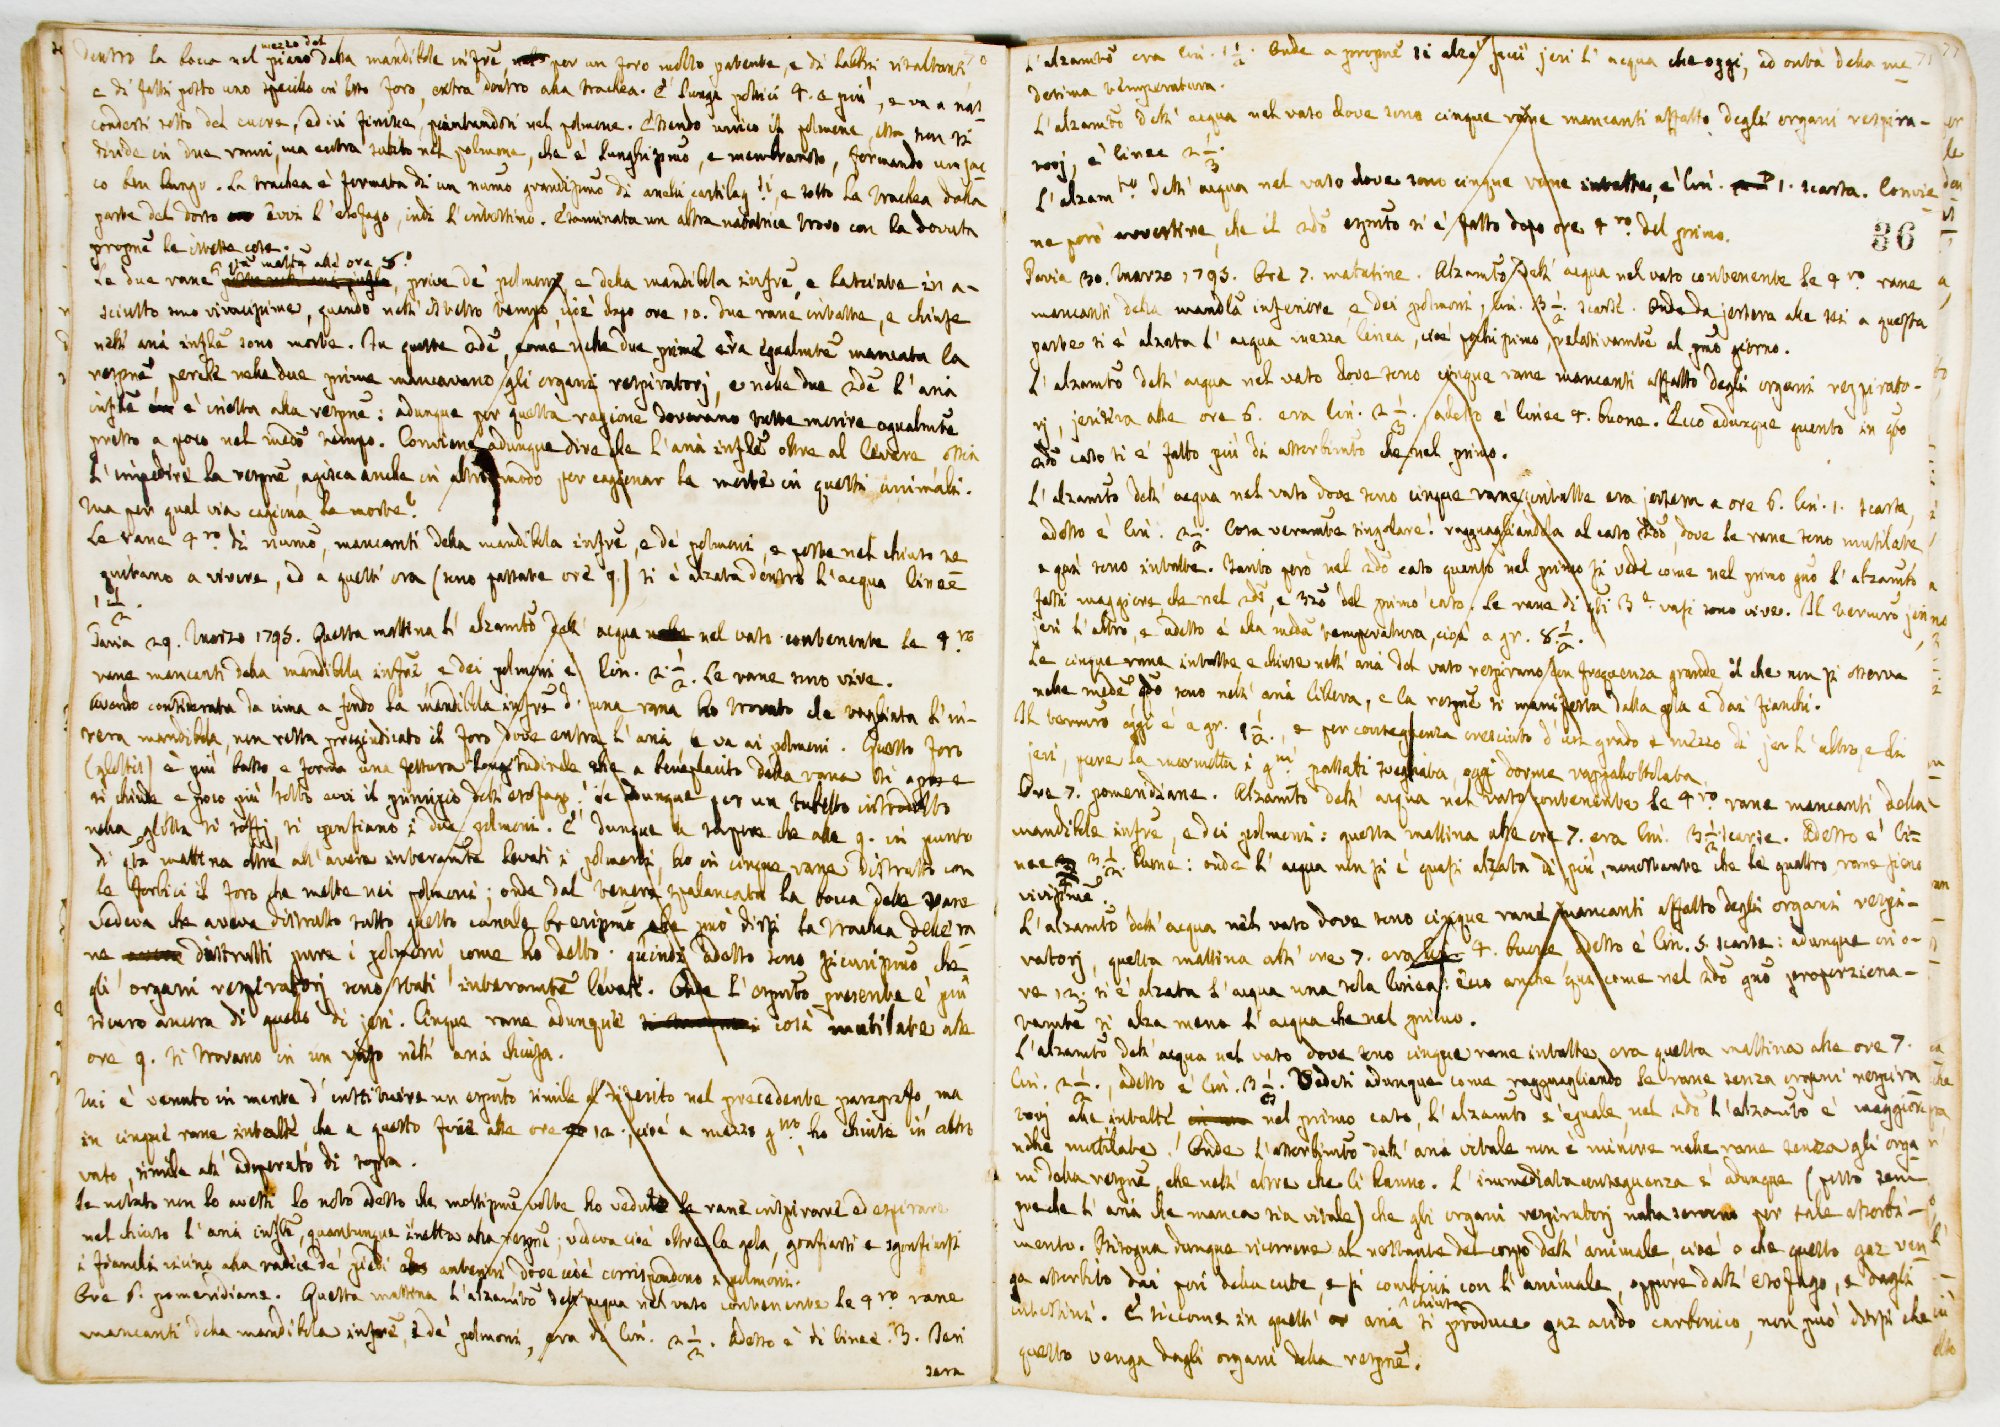 mezzo del
dentro la bocca nel piano della mandibola infre per un foro molto patente, e di labbri risaltanti
e di fatti posto uno specillo in esso foro, entra dentro alla trachea. È lunga pollici 4. e più, e va a nas-
conderti sotto del cuore, ed ivi finisce, piantandosi nel polmone. Essendo unico il polmone, essa non si
divide in due rami, ma entra subito nel polmone, che è lunghissimo, e membranoso, formando un sac
co ben lungo. La trachea è formata di un numo grandissimo di anelli cartilag.si, e sotto la trachea dalla
parte del dorso evvi l'esofago, indi l'intestino. Esaminata un altra trovo con la dovuta
propne le istesse cose.
già messe alle ore 8.
Le due rane prive de' polmoni e della mandibola infre, e lasciate in a-
sciutto sono vivacissime, quando nell'istesso tempo, cioè dopo ore 10. due rane intatte, e chiuse
nell'aria inflē sono morte. In queste 2de, come nelle due prime era egualmte mancata la
respne, perchè nelle due prime mancavano gli organi respiratorj, e nelle due 2de l'aria
inflē è inetta alla respne: adunque per questa ragione dovevano tutte morire egualmte
presto a poco nel medo tempo. Conviene adunque dire che l'aria inflē oltre al levare ossia
l'impedire la respne, agisca anche in altro modo per cagionar la morte in questi animali.
Ma per qual via cagiona la morte?
Le rane 4ro di numo, mancanti della mandibola infre, e de' polmoni, e poste nel chiuso se
guitano a vivere, ed a quest'ora (sono passate ore 9.) si è alzata dentro l'acqua linee
1 1/2.
Pavia 29. Marzo 1795. Questa mattina l'alzamto dell'acqua nel vaso contenente le 4ro
rane mancanti della mandibola infre e dei polmoni è lin. 2 1/2. Le rane sono vive.
Avendo considerata da cima a fondo la mandibola infre d'una rana ho trovato che tagliata l'in-
tera mandibola, non resta pregiudicato il foro dove entra l'aria, e va ai polmoni. Questo foro
(glottis) è più basso, e forma una fessura longitudinale che a beneplacito della rana si apre e
si chiude e poco più sotto evvi il principio dell'esofago. Se dunque per un tubetto introdotto
nella glotta si soffj, si gonfiano i due polmoni. È dunque a sapere che alle 9. in punto
di qta mattina oltre all'avere interamte levati i polmoni, ho in cinque rane distrutto con
le forbici il foro che mette nei polmoni; onde dal tenere spalancata la bocca delle rane
vedeva che aveva distrutto tutto questo canale brevissimo che può dirsi la trachea delle ra
ne distrutti pure i polmoni, come ho detto. Quindi adesso sono sicurissimo che
gli organi respiratorj sono stati interamte levati. Onde l'esprto presente è più
sicuro ancora di quello di jeri. Cinque rane adunque così mutilate alle
ore 9. si trovano in un vaso nell'aria chiusa.
Mi è venuto in mente d'instituire un esprto simile al riferito nel precedente paragrafo, ma
in cinque rane intatte, che a questo fine alle ore 12., cioè a mezzo gno ho chiuse in altro
vaso, simile all'adoperato di sopra.
Se notato non lo avessi lo noto adesso che moltissime volte ho vedute le rane inspirare ed espirare
nel chiuso l'aria inflē, quantunque inetta alla respne; vedeva cioè oltre la gola, gonfiarsi e sgonfiarsi
i fianchi vicino alla radice de' piedi anteriori dove cioè corrispondono i polmoni.
Ore 6. pomeridiane. Questa mattina l'alzamto dell'acqua nel vaso contenente le 4ro rane
mancanti della mandibola infre, e de' polmoni, era di lin. 2 1/2. Adesso è di linee 3. Jeri
sera
L'alzamto era lin. 1 1/2. Onde a propne si alzò più jeri l'acqua che oggi, ad onta della me
desima temperatura.
L'alzamto dell'acqua nel vaso dove sono cinque rane mancanti affatto degli organi respira-
torj, è linee 2 1/3.
L'alzamto dell'acqua nel vaso dove sono cinque rane intatte, è lin. 1. scarsa. Convie
ne però avvertire, che il 2do esprto si è fatto dopo ore 4ro del primo.
36
Pavia 30. Marzo 1795. Ore 7. matutine. Alzamto dell'acqua nel vaso contenente le 4ro rane
mancanti della mandla inferiore, e dei polmoni, lin. 3 1/2 scarse. Onde da jersera alle sei a questa
parte si è alzata l'acqua mezza linea, cioè pochissimo, relativamte al pmo giorno.
L'alzamto dell'acqua nel vaso dove sono cinque rane mancanti affatto degli organi respirato-
rj, jerisera alle ore 6. era lin. 2 1/3. adesso è linee 4. buone. Ecco adunque quanto in qto
2do caso si è fatto più di assorbimto che nel primo.
L'alzamto dell'acqua nel vaso dove sono cinque rane intatte era jersera a ore 6. lin. 1. scarsa,
adesso è lin. 2 1/2. Cosa veramte singolare! ragguagliandola al caso 2do, dove le rane sono mutilate
e qui sono intatte. Tanto però nel 2do caso quanto nel primo si vede come nel primo gno l'alzamto
fassi maggiore che nel 2do, e 3zo del primo caso. Le rane di qti 3 vasi sono vive. Il termro jeri,
jeri l'altro, e adesso è alla meda temperatura, cioè a gr. 8 1/2.
Le cinque rane intatte e chiuse nell'aria del vaso respirano con frequenza grande, il che non si osserva
nelle mede qdo sono nell'aria libera, e la respne si manifesta dalla gola e dai fianchi.
Il termro oggi è a gr. 9 1/2., e per conseguenza cresciuto d'un grado e mezzo di jer l'altro, e di
jeri, pure la marmotta i gni passati svegliata, oggi dorme raggomitolata.
Ore 7. pomeridiane. Alzamto dell'acqua nel vaso contenente le 4ro rane mancanti della
mandibola infre, e dei polmoni: questa mattina alle ore 7. era lin. 3 1/2 scarse. Adesso è li-
nee 3 1/2. buone: onde l'acqua non si è quasi alzata di più, nonostante che le quattro rane sieno
vivissime.
L'alzamto dell'acqua nel vaso dove sono cinque rane mancanti affatto degli organi respi-
ratorj, questa mattina all'ore 7. era lin. 4. buone adesso è lin. 5. scarse: adunque in o-
re 12. si è alzata l'acqua una sola linea: Ecco anche qui come nel 2do gno proporziona-
tamte si alza meno l'acqua che nel primo.
L'alzamto dell'acqua nel vaso dove sono cinque rane intatte, era questa mattina alle ore 7.
lin. 2 1/2., adesso è lin. 3 1/3. Vedesi adunque come ragguagliando le rane senza organi respira
torj alle intatte nel primo caso, l'alzamto è eguale, nel 2do l'alzamto è maggiore
nelle mutilate! Onde l'assorbimto dell'aria vitale non è minore nelle rane senza gli orga
ni della respne, che nell'altre che li hanno. L'immediata conseguenza è adunque (posto sem-
preche l'aria che manca sia vitale) che gli organi respiratorj nulla servono per tale assorbi-
mento. Bisogna dunque ricorrere al restante del corpo dell'animale, cioè o che questo gaz ven
ga assorbito dai pori della cute, e si combini con l'animale, oppure dall'esofago, e dagli
chiusa
intestini. E siccome in quest' aria si produce gaz acido carbonico, non può dirsi che
questo venga dagli organi della respne.